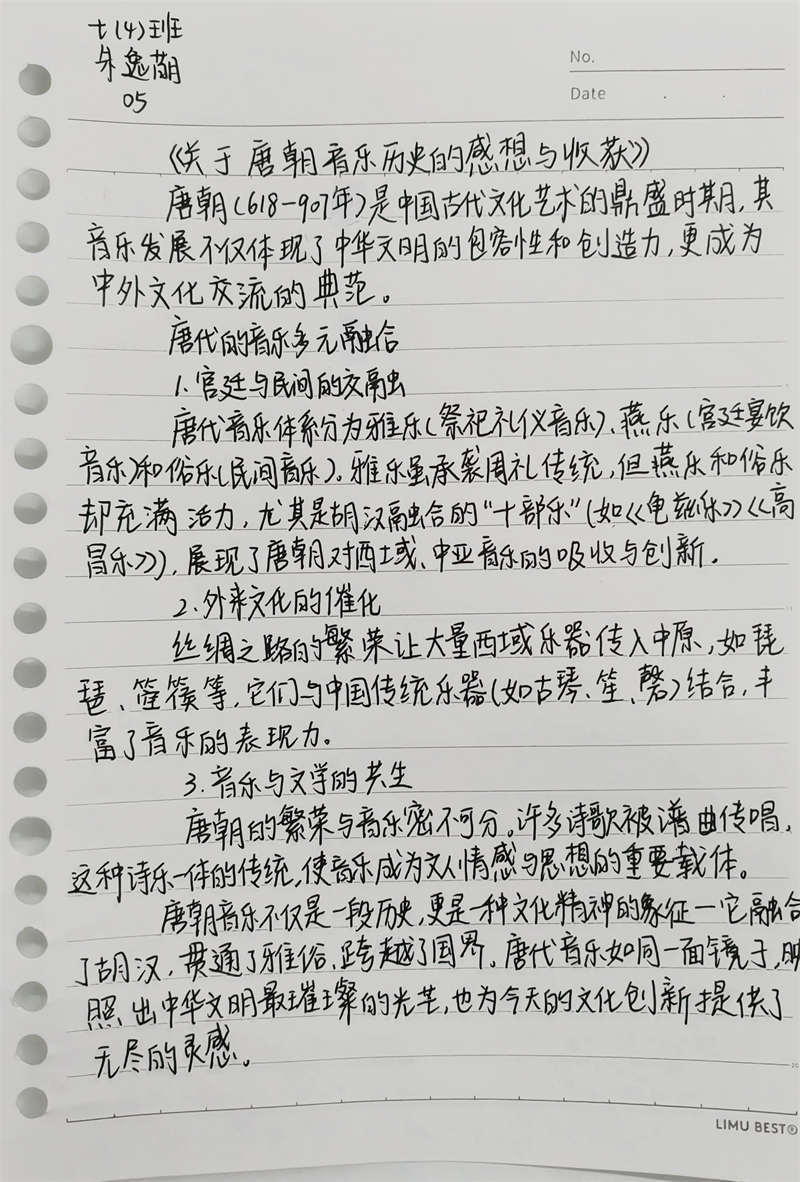 七(4)班
朱逸萌
05
No.
Date . .
《关于唐朝音乐历史的感想与收获》
唐朝(618-907年)是中国古代文化艺术的鼎盛时期,其
音乐发展不仅体现了中华文明的包容性和创造力,更成为
中外文化交流的典范。
唐代的音乐多元融合
1.宫廷与民间的交融
唐代音乐体系分为雅乐(祭祀礼仪音乐)、燕乐(宫廷宴饮
音乐)和俗乐(民间音乐)。雅乐虽承袭周礼传统,但燕乐和俗乐
却充满活力,尤其是胡汉融合的"十部乐"(如《龟兹乐》《高
昌乐》),展现了唐朝对西域、中亚音乐的吸收与创新。
2.外来文化的催化
丝绸之路的繁荣让大量西域乐器传入中原,如琵
琶、箜篌等,它们与中国传统乐器(如古琴、笙、磬)结合,丰
富了音乐的表现力。
3.音乐与文学的共生
唐朝的繁荣与音乐密不可分。许多诗歌被谱曲传唱,
这种诗乐一体的传统,使音乐成为文人情感与思想的重要载体。
唐朝音乐不仅是一段历史,更是一种文化精神的象征一它融合
了胡汉,贯通了雅俗、跨越了国界。唐代音乐如同一面镜子,映
照出中华文明最璀璨的光芒,也为今天的文化创新提供了
无尽的灵感。
20
LIMU BEST®